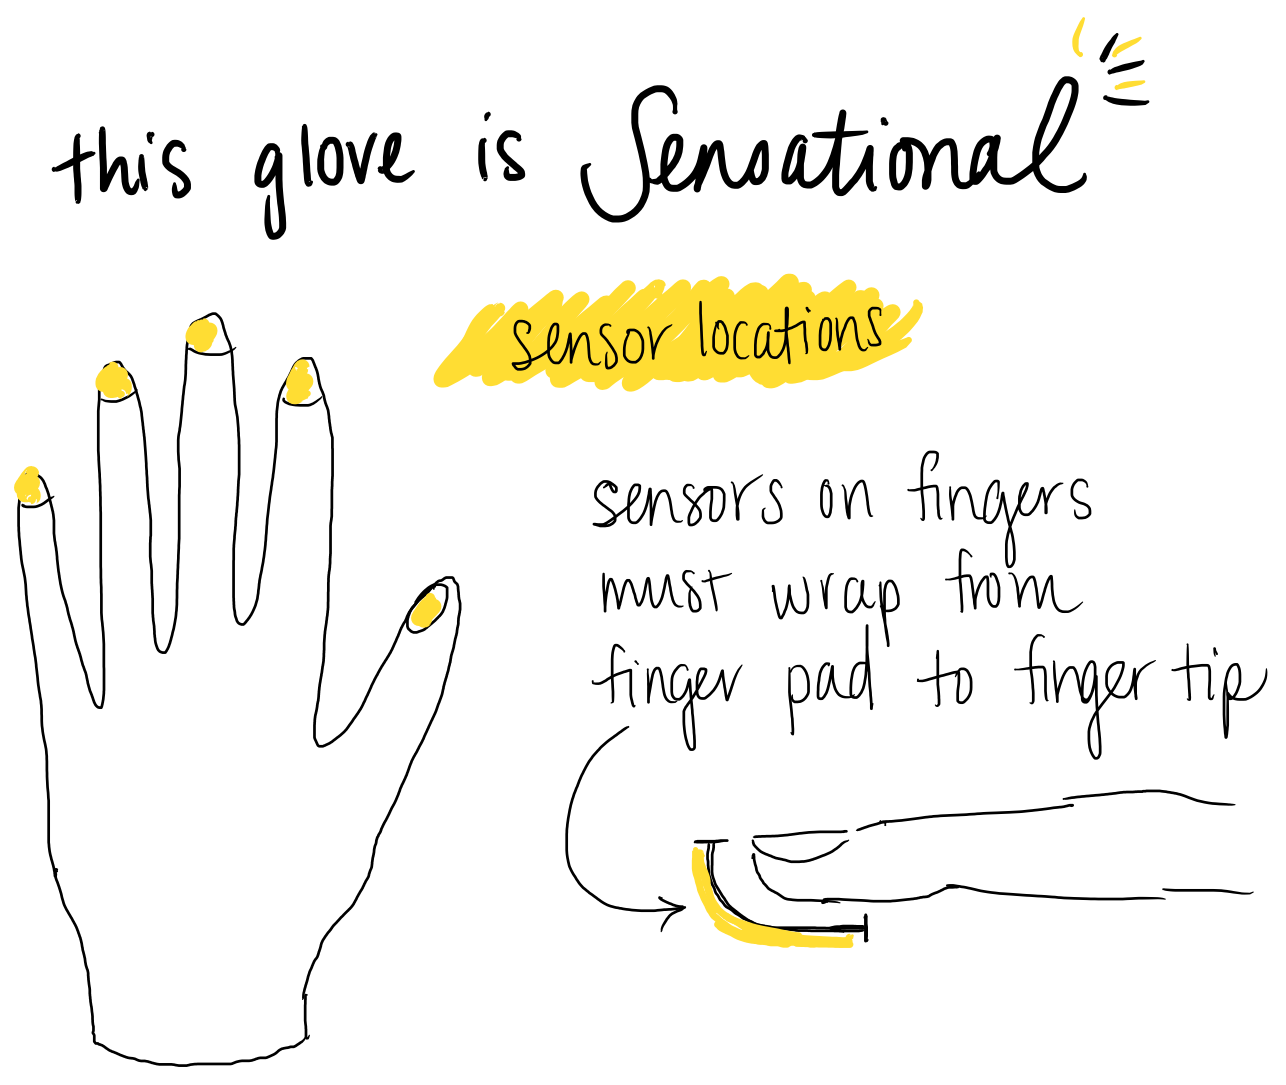 this glove is Sensational
sensor locations
sensors on fingers
must wrap from
finger pad to finger tip